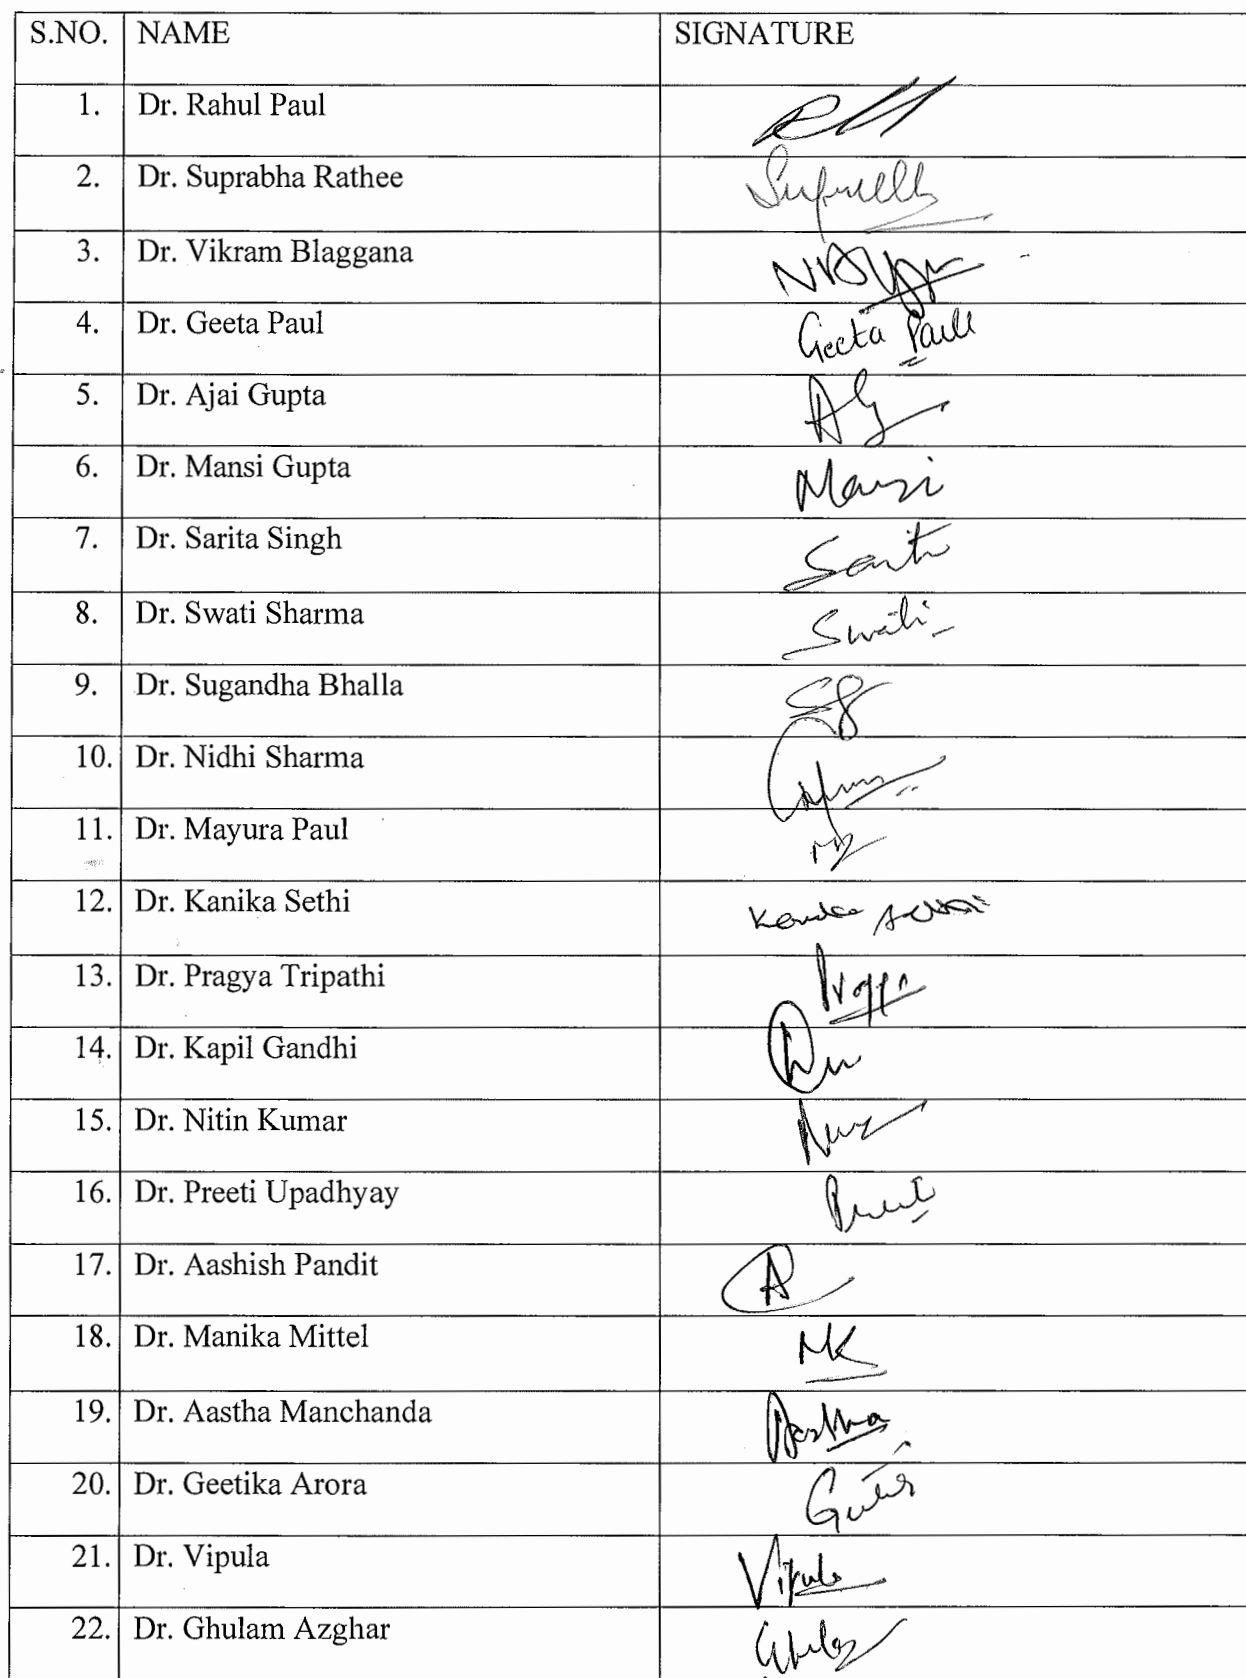 S.NO. NAME SIGNATURE
1. Dr. Rahul Paul
2. Dr. Suprabha Rathee
3. Dr. Vikram Blaggana
4. Dr. Geeta Paul Geeta Paul
5. Dr. Ajai Gupta AG
6. Dr. Mansi Gupta Mansi
7. Dr. Sarita Singh
8. Dr. Swati Sharma Swati
9. Dr. Sugandha Bhalla
10. Dr. Nidhi Sharma
11. Dr. Mayura Paul
12. Dr. Kanika Sethi
13. Dr. Pragya Tripathi
14. Dr. Kapil Gandhi
15. Dr. Nitin Kumar
16. Dr. Preeti Upadhyay
17. Dr. Aashish Pandit
18. Dr. Manika Mittel MK
19. Dr. Aastha Manchanda Aastha
20. Dr. Geetika Arora
21. Dr. Vipula Vipula
22. Dr. Ghulam Azghar